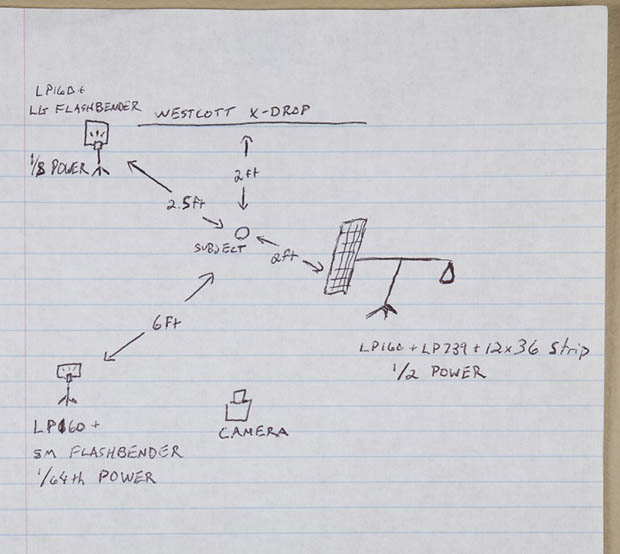 LP160 +
LG FLASHBENDER
WESTCOTT X-DROP
1/8 POWER
2ft
2.5ft
SUBJECT
2ft
6ft
LP160 + LP739 + 12x36 Strip
1/2 POWER
LP160 +
SM FLASHBENDER
1/64th POWER
CAMERA